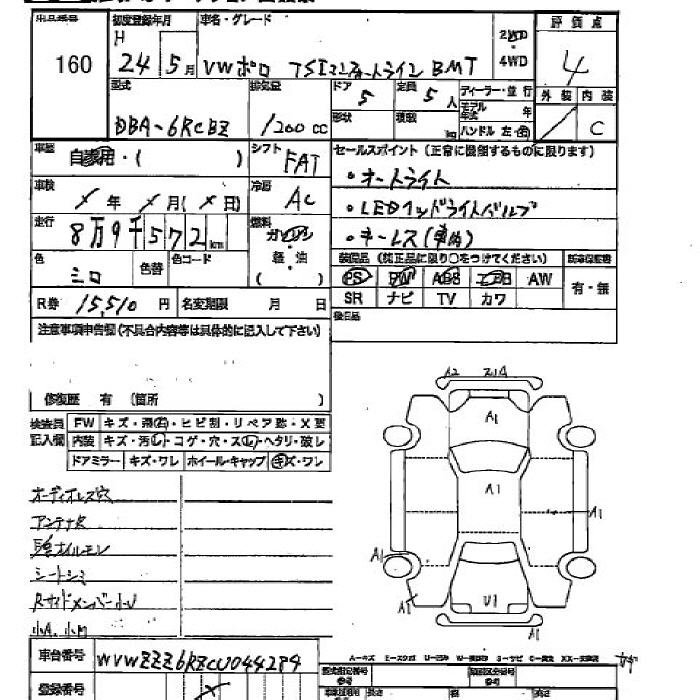 出品番号
160
初度登録年月
H
24 5月
車名・グレード
VWポロ TSIコンフォートライン BMT
2WD
・
4WD
評価点
4
外装 内装
C
型式
DBA-6RCBZ
排気量
1200 cc
ドア
5
定員
5人
形状
積載
kg
ディーラー・並行
モデル年式 年
ハンドル 左・右
車歴
自家用・( )
シフト
FAT
車検
年 月( 日)
冷房
AC
走行
8万9千572km
燃料
ガソリン
・
軽・油
( )
色
シロ
色替
色コード
セールスポイント (正常に機能するものに限ります)
・オートライト
・LEDヘッドライトバルブ
・キーレス(車内)
装備品 (純正品に限り○をつけてください)
新車保証書
PS PW ABS エアB AW
SR ナビ TV カワ
有・無
R券 15,510円
名変期限 月 日
後日品
注意事項申告欄(不具合内容等は具体的に記入して下さい)
修復歴 有 (箇所 )
検査員
記入欄
FW キズ・飛石・ヒビ割・リペア跡・X要
内装 キズ・汚レ・コゲ・穴・スレ・ヘタリ・破レ
ドアミラー キズ・ワレ ホイール・キャップ キズ・ワレ
オーディオレス穴
アンテナ欠
シートシミ
Rサイドメンバー小U
小A、小U
A2
A1
A1
A1
A1
A1
U1
A1
車台番号
WVWZZZ6RZCU044284
登録番号
A-キズ E-エクボ U-凹み W-補修跡 S-サビ C-腐食 XX-交換済